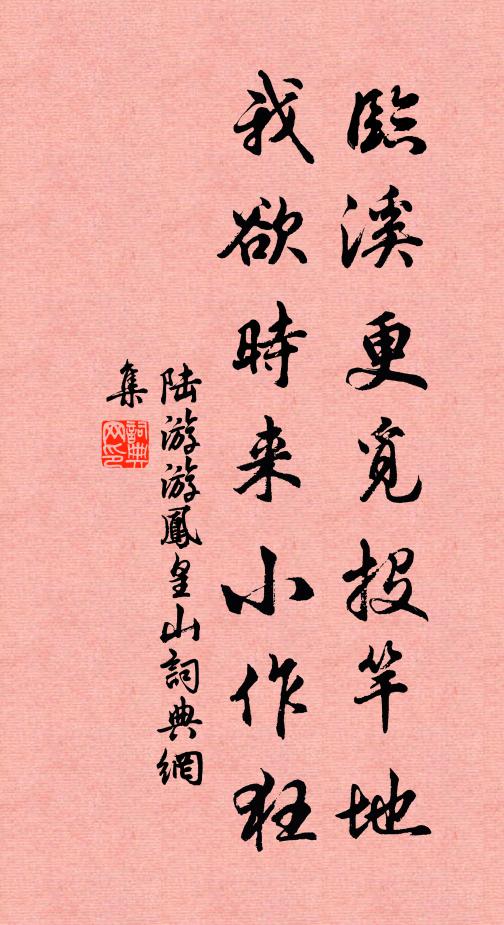 臨溪更覓投竿地
我欲時来小作狂
陆游游鳳皇山詞典網
集
詞典
网印